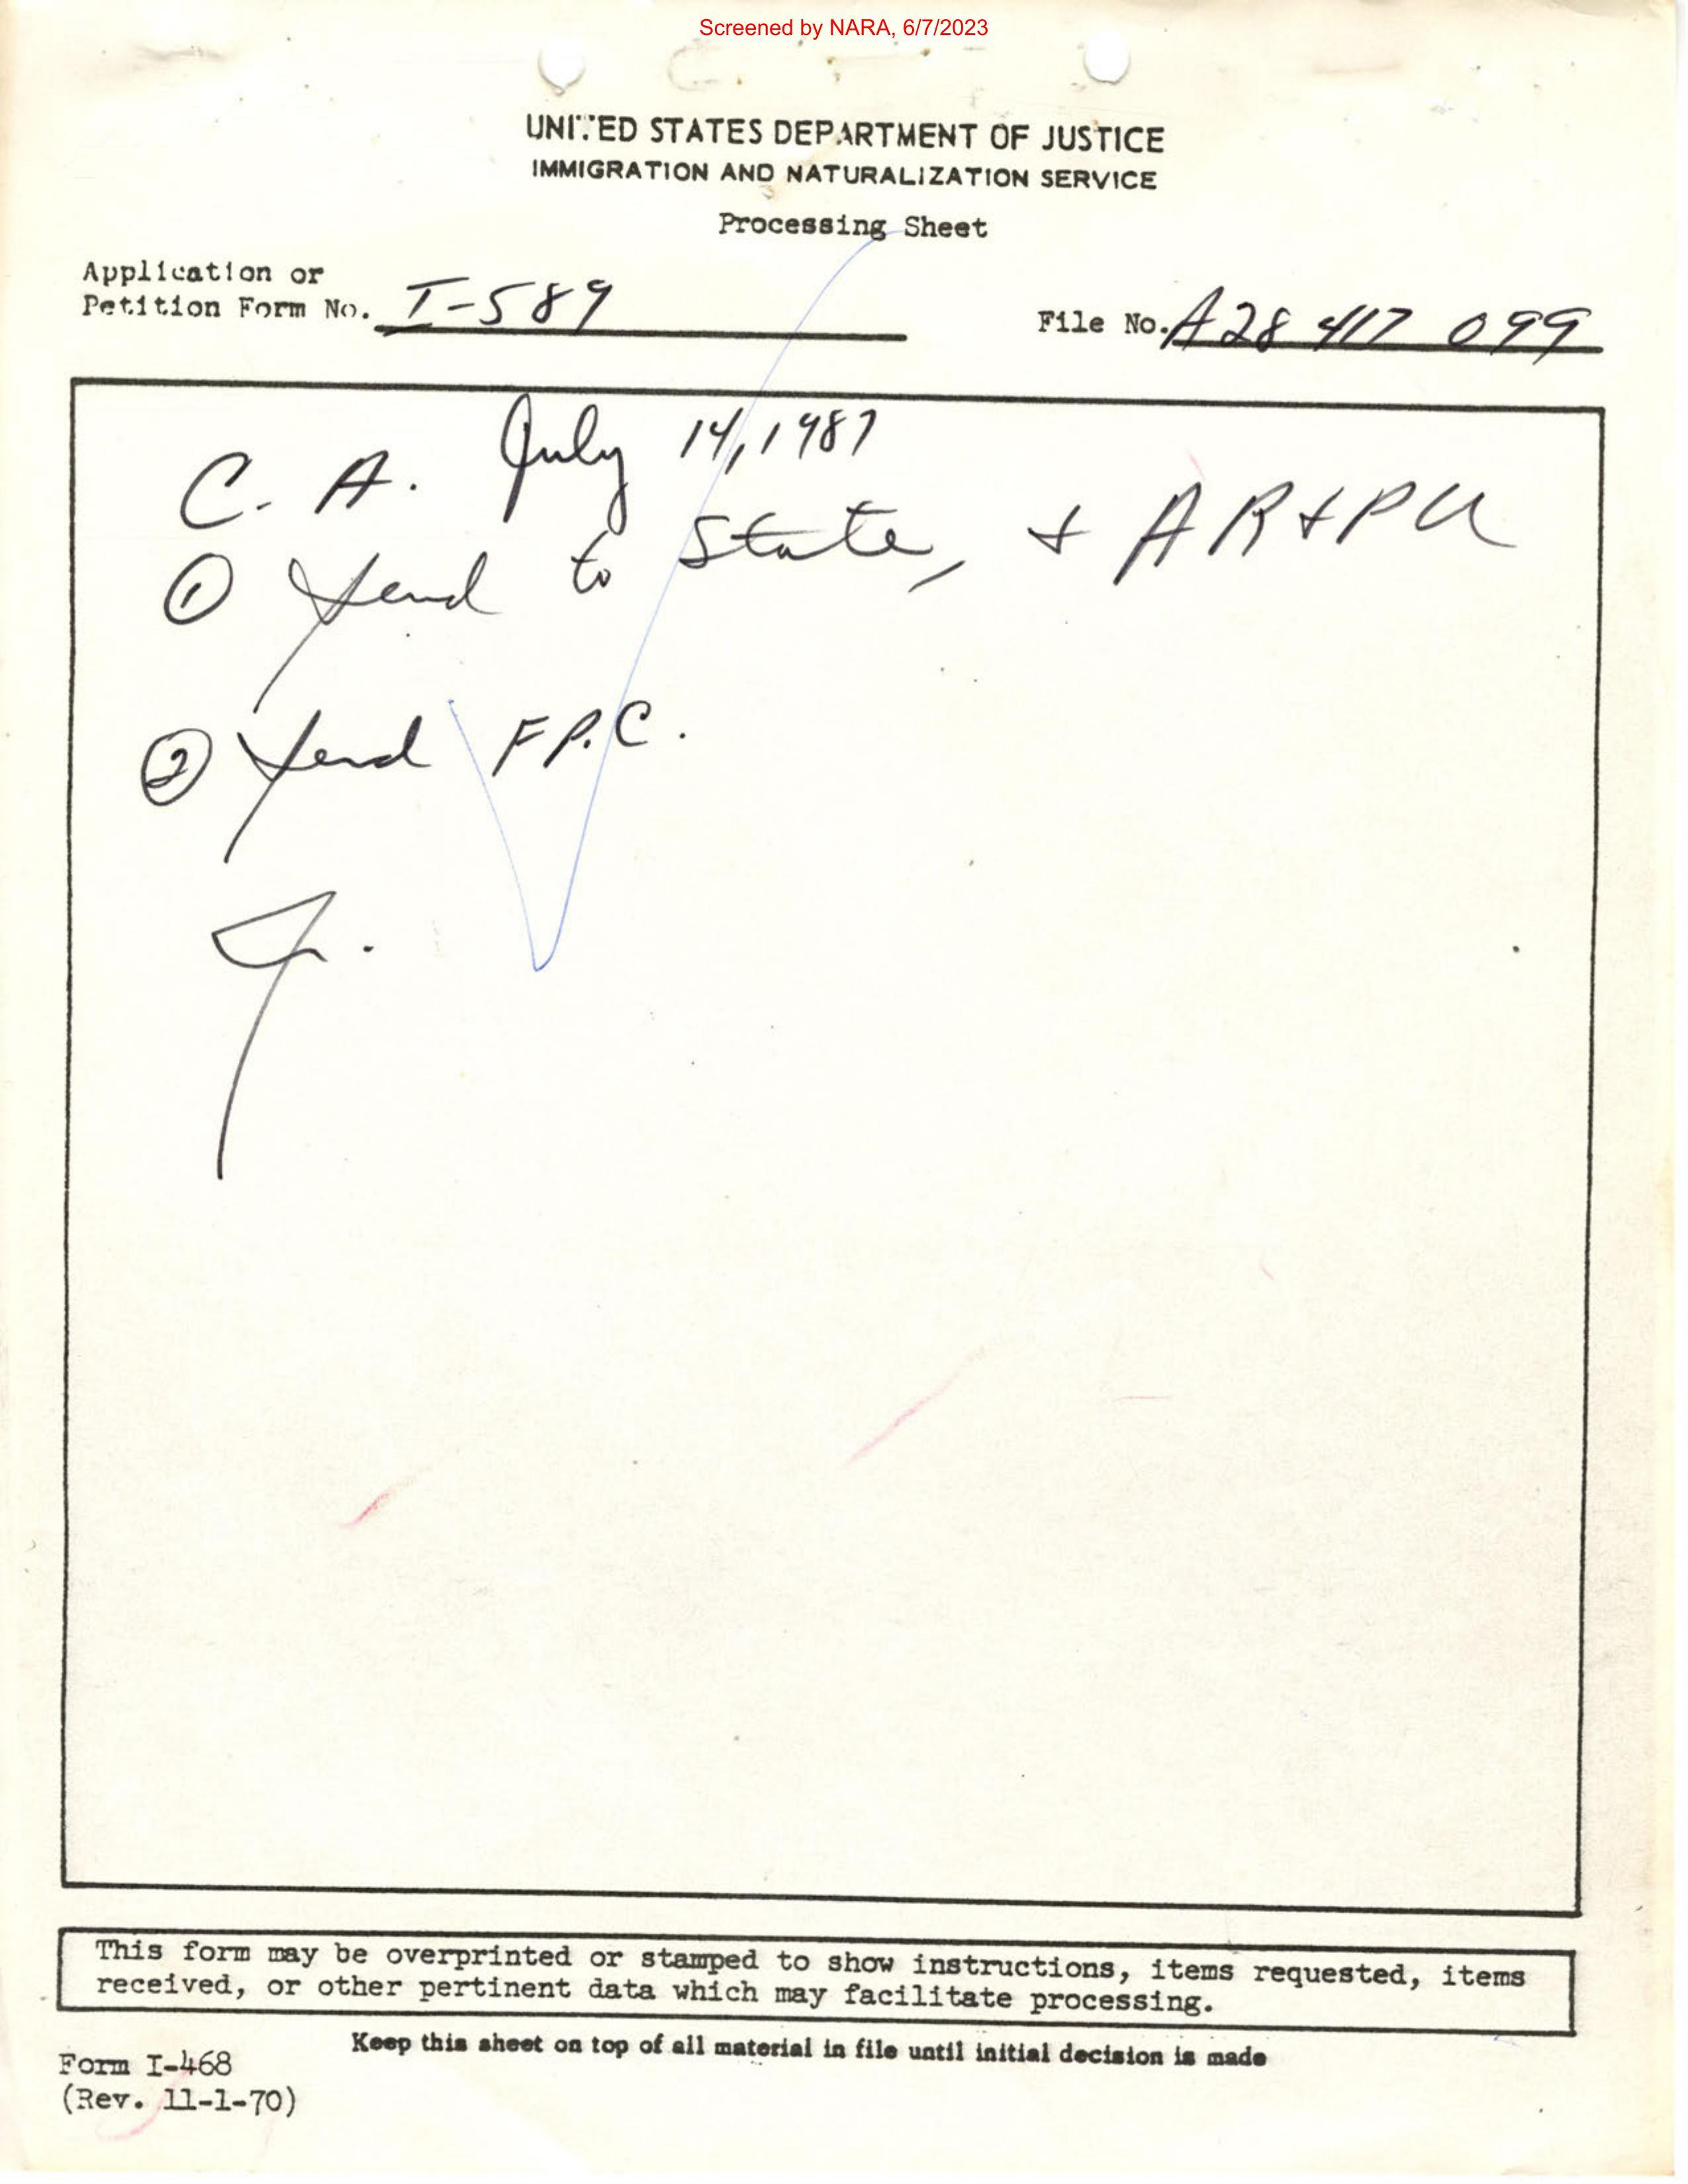 Screened by NARA, 6/7/2023
UNITED STATES DEPARTMENT OF JUSTICE
IMMIGRATION AND NATURALIZATION SERVICE
Processing Sheet
Application or
Petition Form No. I-589
File No. A28 417 099
July 14, 1987
C. A.
① Send to State, + AR+PU
② Send F.P.C.
This form may be overprinted or stamped to show instructions, items requested, items
received, or other pertinent data which may facilitate processing.
Keep this sheet on top of all material in file until initial decision is made
Form I-468
(Rev. 11-1-70)